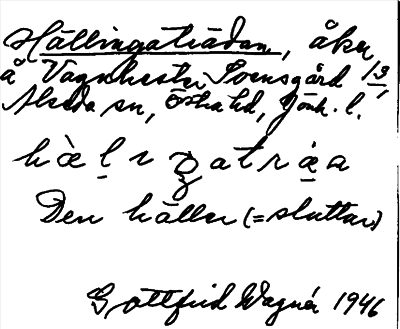 Hällingaträdan, åker,
å Vagnhester Svensgård 1:3,
Alseda sn, Östra hd, Jönk. l.
Den håller (= sluttar)
Gottfrid Wagnér 1946